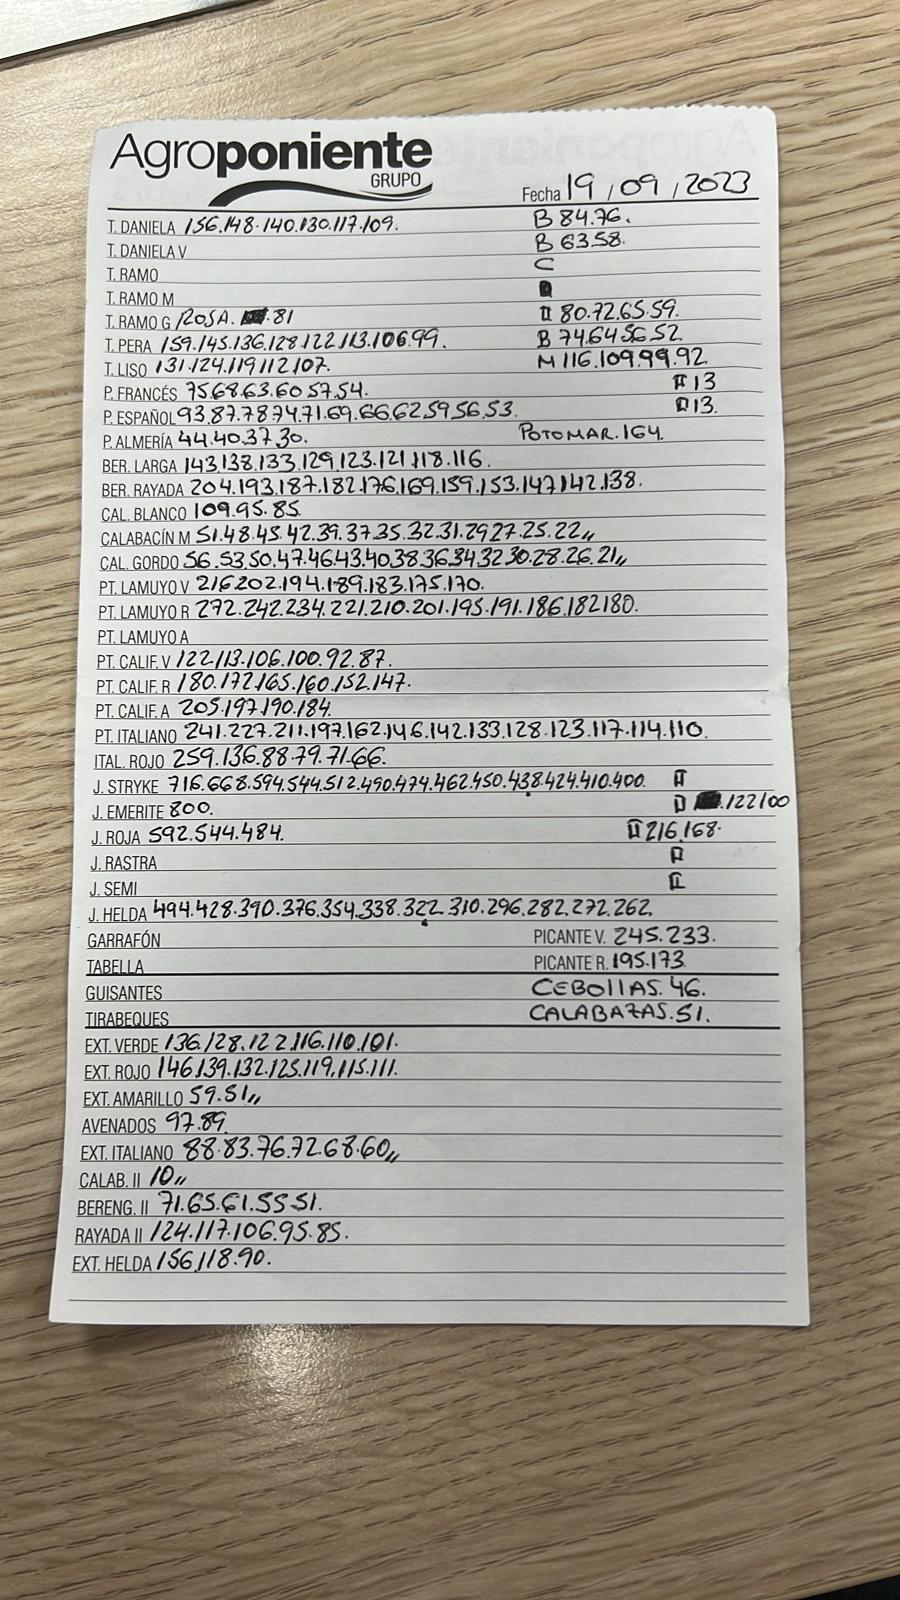 Agroponiente
GRUPO
Fecha 19/09/2023
T. DANIELA 156.148.140.130.117.109. B 84.76.
T. DANIELA V B 63.58.
T. RAMO C
T. RAMO M
T. RAMO G ROSA. .81 II 80.72.65.59.
T. PERA 159.145.136.128.122.113.106.99. B 74.64.56.52
T. LISO 131.124.119.112.107. M 116.109.99.92.
P. FRANCÉS 75.68.63.60.57.54. II 13
P. ESPAÑOL 93.87.78.74.71.69.66.62.59.56.53. II 13.
P. ALMERÍA 44.40.37.30. POTOMAR.164.
BER. LARGA 143.138.133.129.123.121.118.116.
BER. RAYADA 204.193.187.182.176.169.159.153.147.142.138.
CAL. BLANCO 109.95.85.
CALABACÍN M 51.48.45.42.39.37.35.32.31.29.27.25.22,,
CAL. GORDO 56.53.50.47.46.43.40.38.36.34.32.30.28.26.21,,
PT. LAMUYO V 216.202.194.189.183.175.170.
PT. LAMUYO R 272.242.234.221.210.201.195.191.186.182.180.
PT. LAMUYO A
PT. CALIF. V 122.113.106.100.92.87.
PT. CALIF. R 180.172.165.160.152.147.
PT. CALIF. A 205.197.190.184.
PT. ITALIANO 241.227.211.197.162.146.142.133.128.123.117.114.110.
ITAL. ROJO 259.136.88.79.71.66.
J. STRYKE 716.668.594.544.512.490.474.462.450.438.424.410.400. II
J. EMERITE 800. II .122.100
J. ROJA 592.544.484. II 216.168.
J. RASTRA II
J. SEMI II
J. HELDA 494.428.390.376.354.338.322.310.296.282.272.262.
GARRAFÓN PICANTE V. 245.233.
TABELLA PICANTE R. 195.173
GUISANTES CEBOllAS. 46.
TIRABEQUES CALABAZAS. 51.
EXT. VERDE 136.128.122.116.110.101.
EXT. ROJO 146.139.132.125.119.115.111.
EXT. AMARILLO 59.51,,
AVENADOS 97.89.
EXT. ITALIANO 88.83.76.72.68.60,,
CALAB. II 10,,
BERENG. II 71.65.61.55.51.
RAYADA II 124.117.106.95.85.
EXT. HELDA 156.118.90.